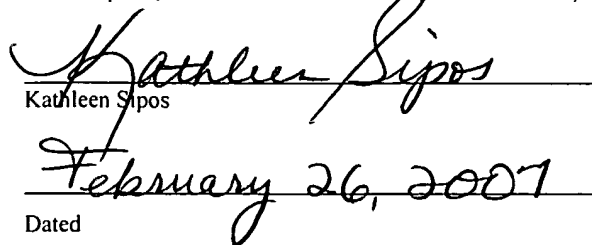 Kathleen Sipos
Kathleen Sipos
February 26, 2007
Dated